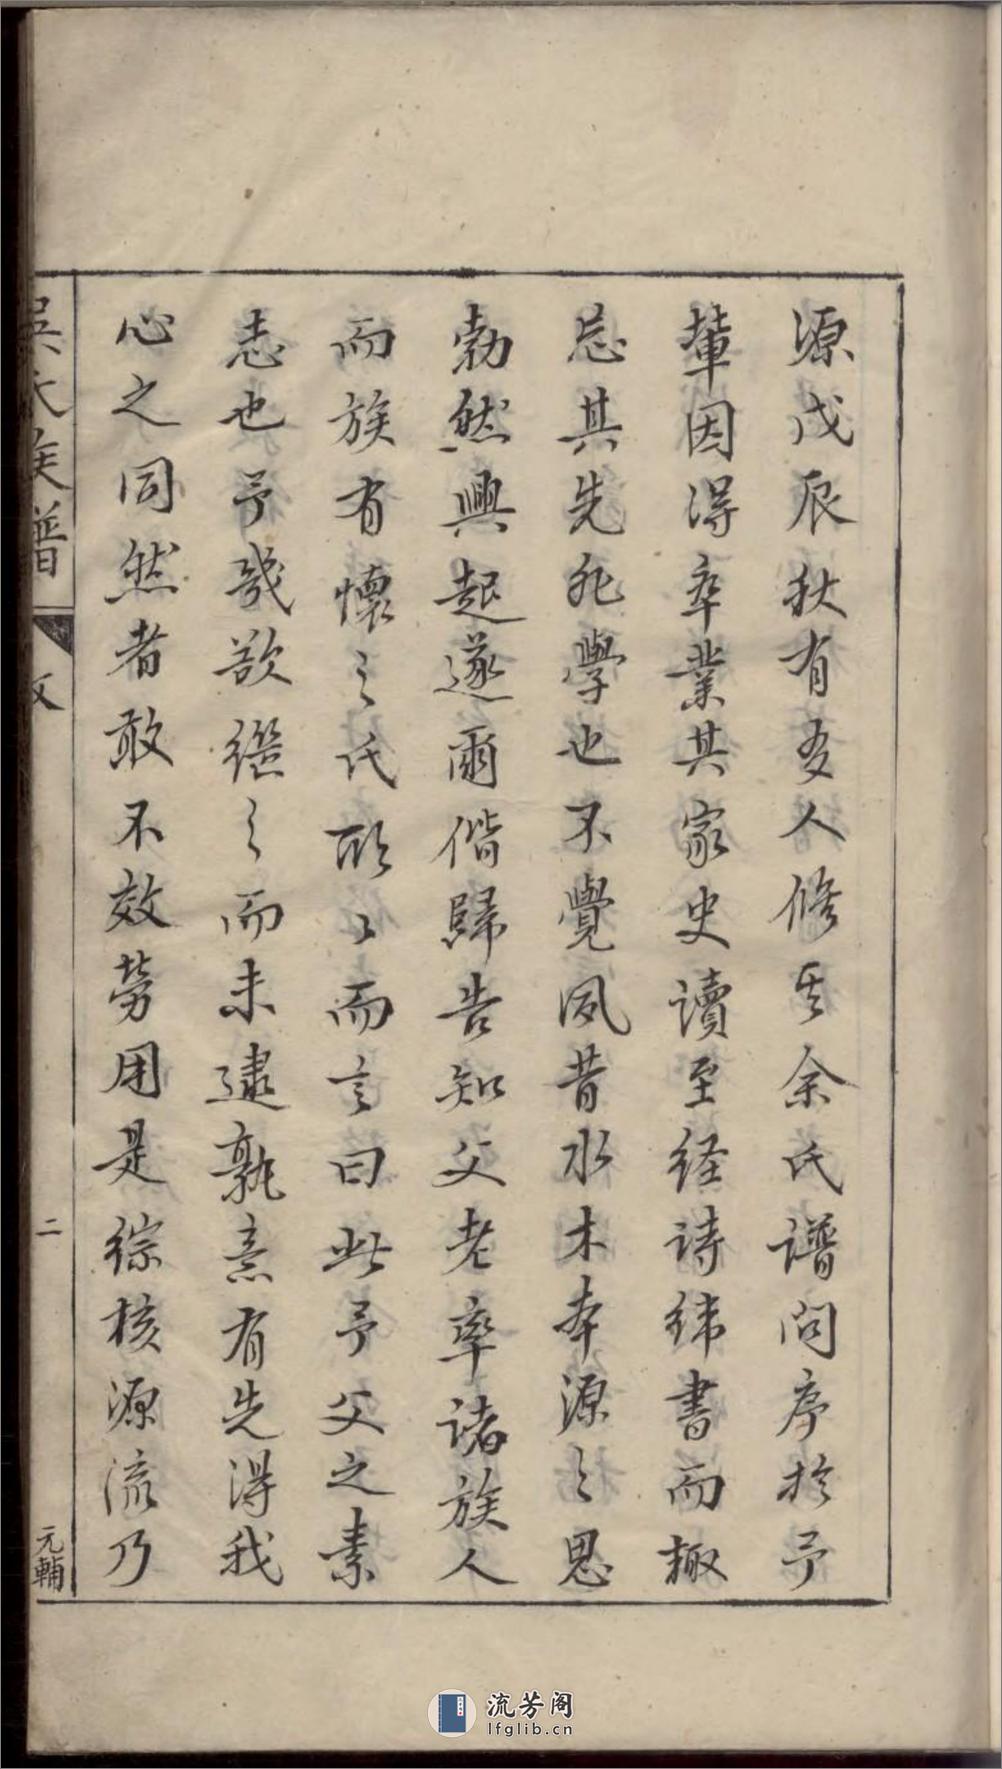 源戊辰秋有友人修其余氏譜問序於予
輩因得卒業其家史讀至經詩緯書而輙
忘其先死學也不覺夙昔水木本源之思
勃然興起遂爾偕歸告知父老率諸族人
而族有懷之氏欣欣而言曰此予父之素
志也予幾欲繼之而未逮孰意有先得我
心之同然者敢不效勞用是綜核源流乃
吳氏族譜
二
元輔
流芳阁
lfglib.cn